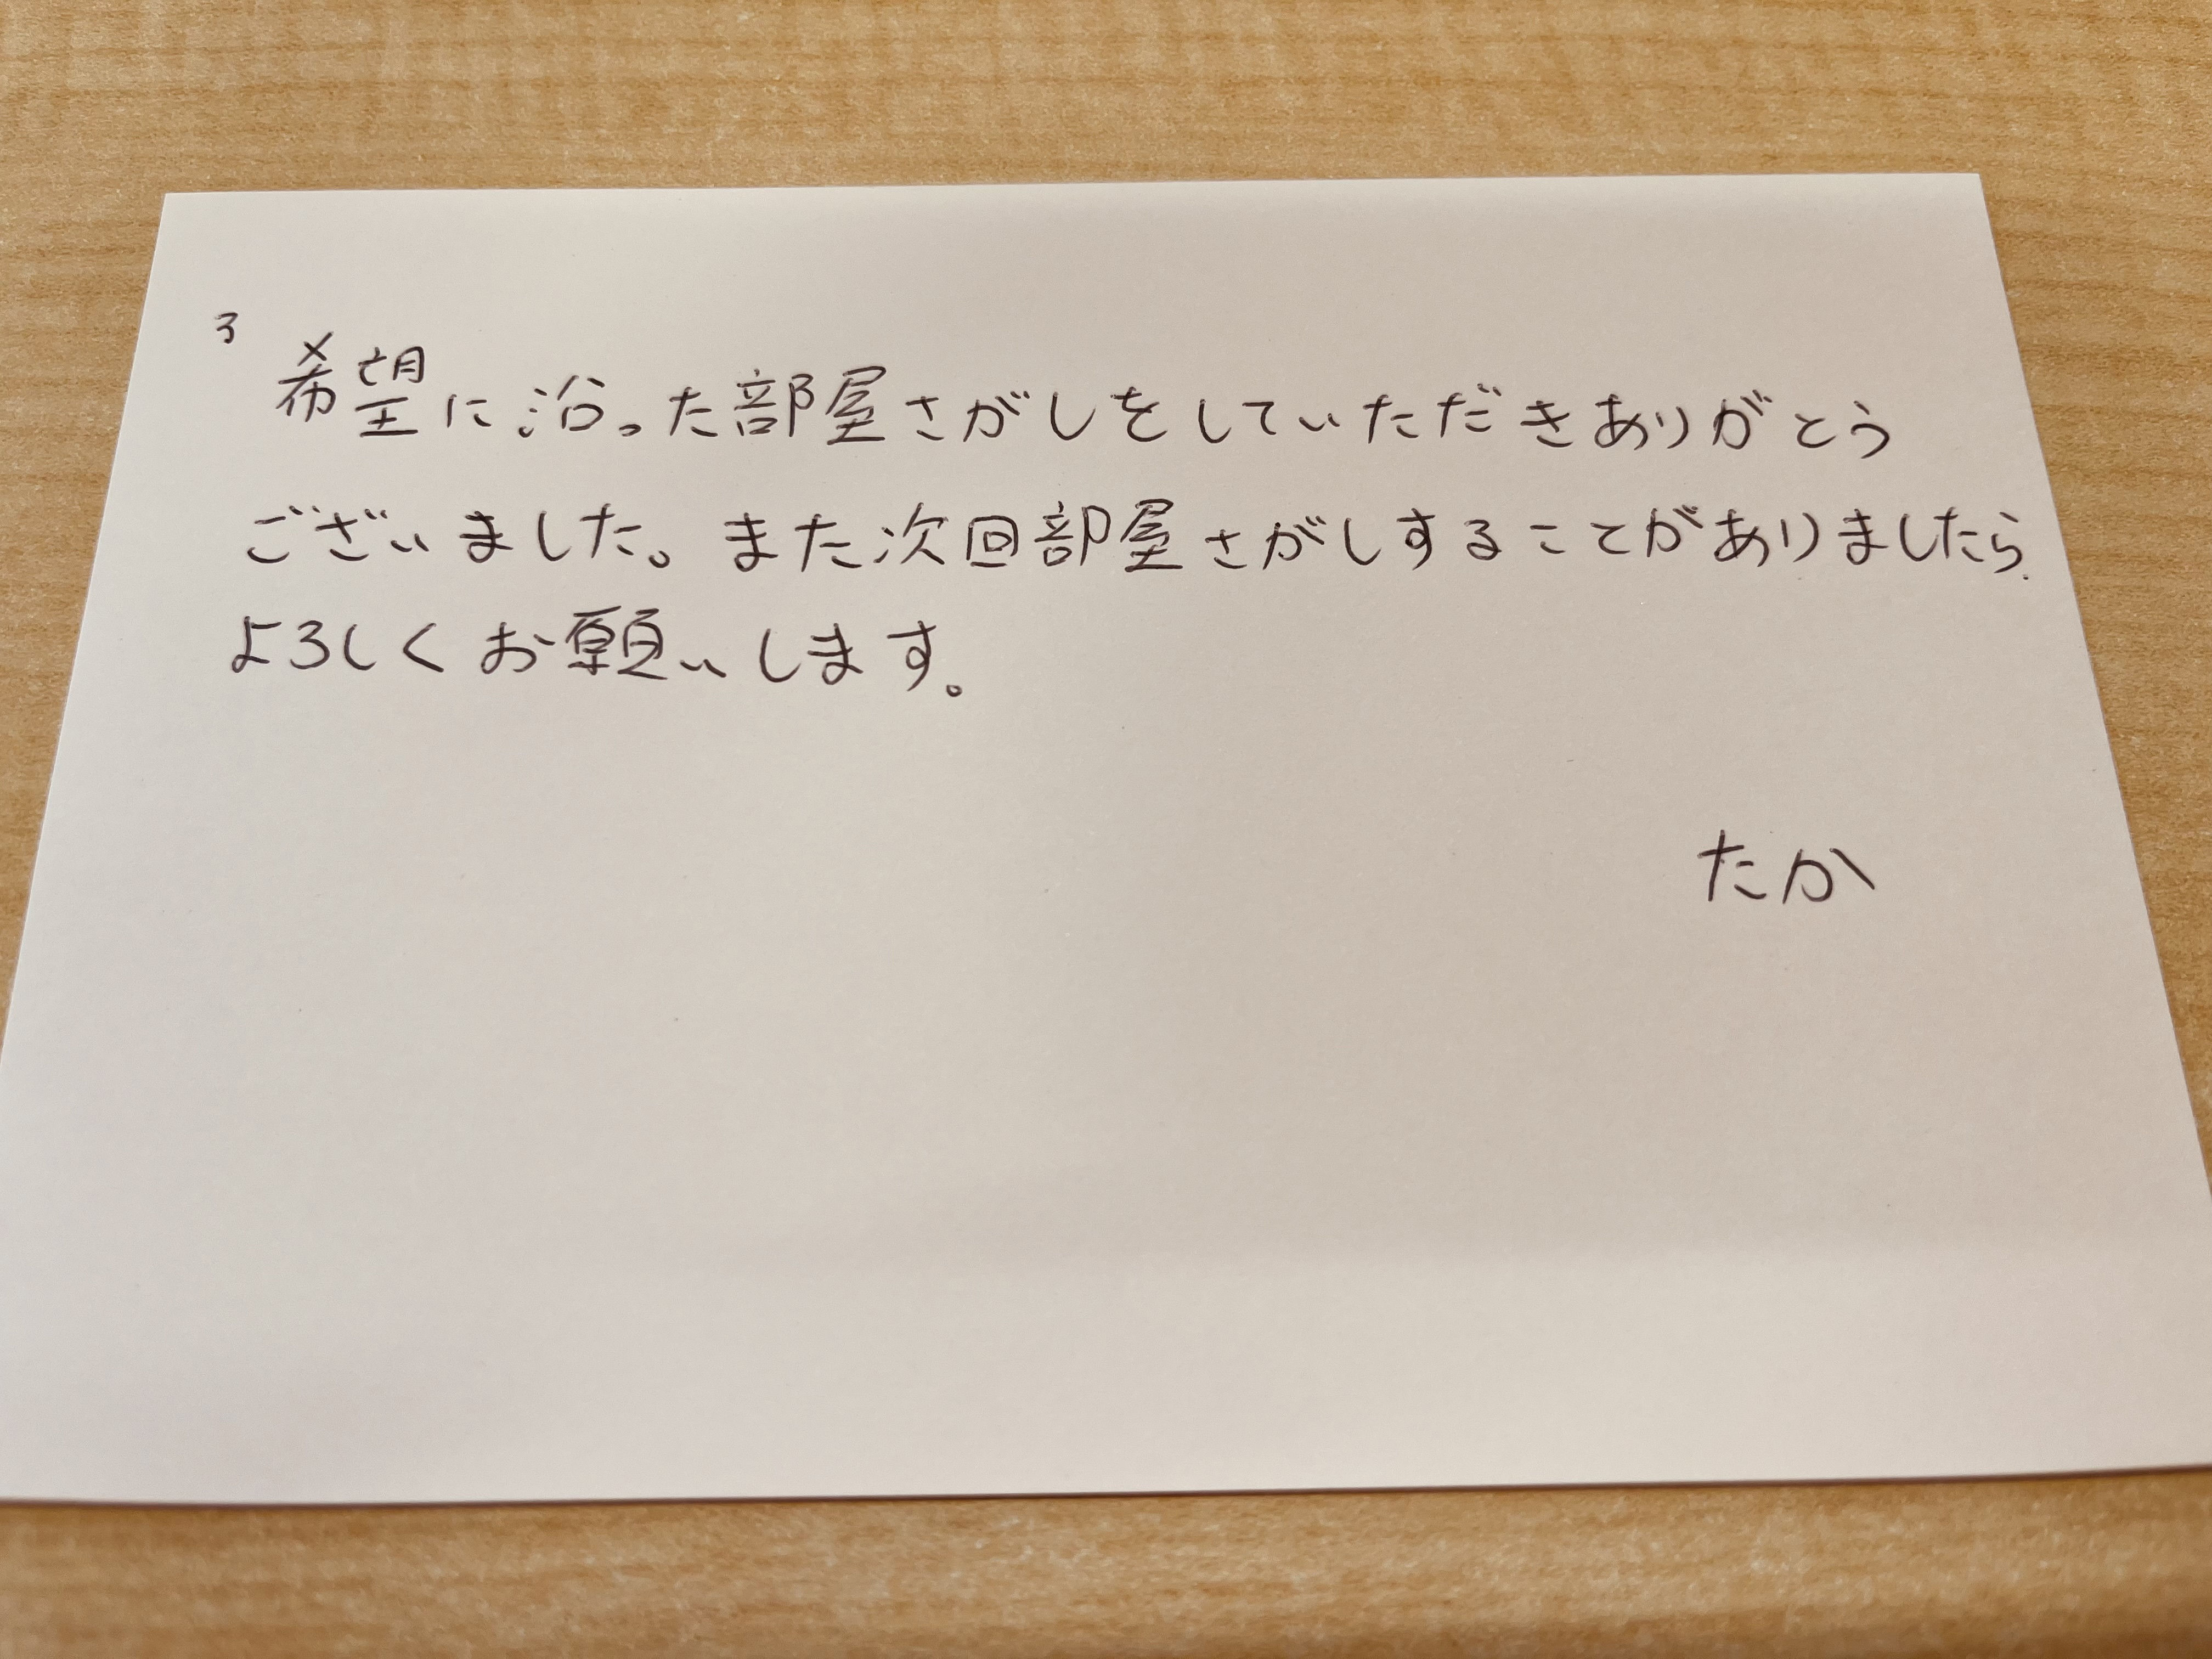 3
希望に沿った部屋さがしをしていただきありがとう
ございました。また次回部屋さがしすることがありましたら
よろしくお願いします。
たか